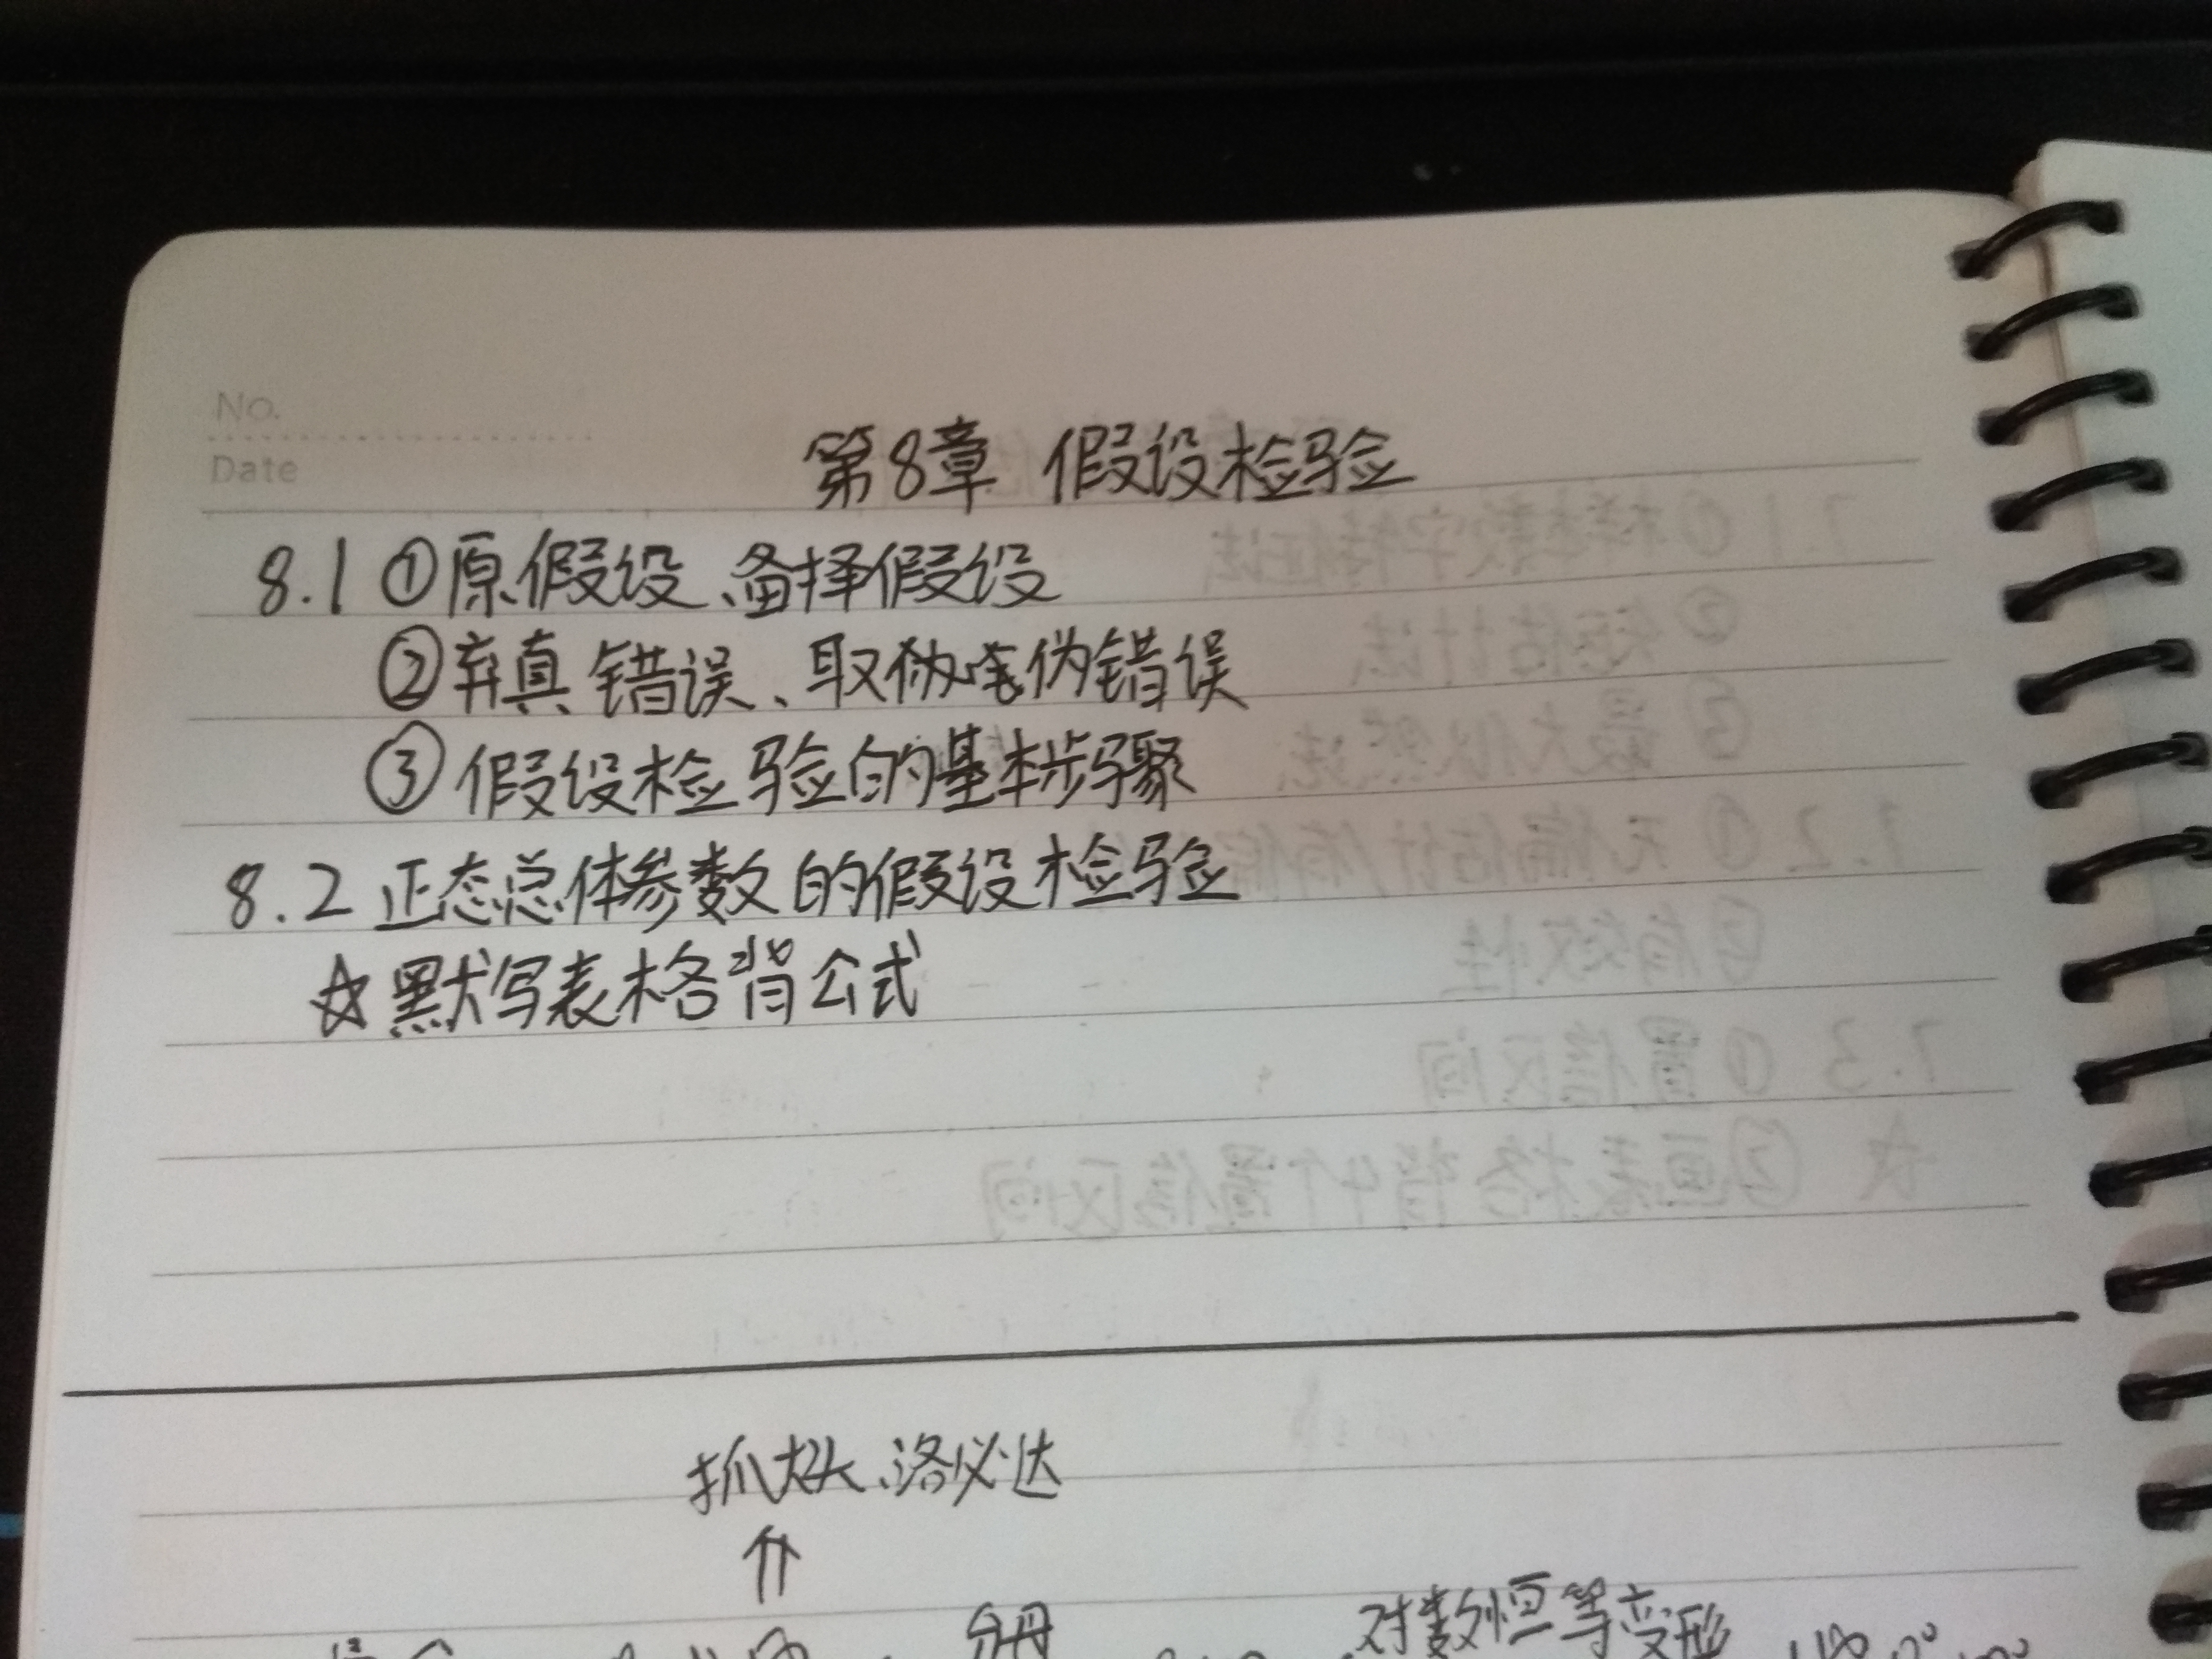 No.
Date
第8章 假设检验
8.1 ①原假设、备择假设
②弃真错误、取伪错误
③假设检验的基本步骤
8.2 正态总体参数的假设检验
☆默写表格背公式
抓大头、洛必达
⇑
分母
对数恒等变形